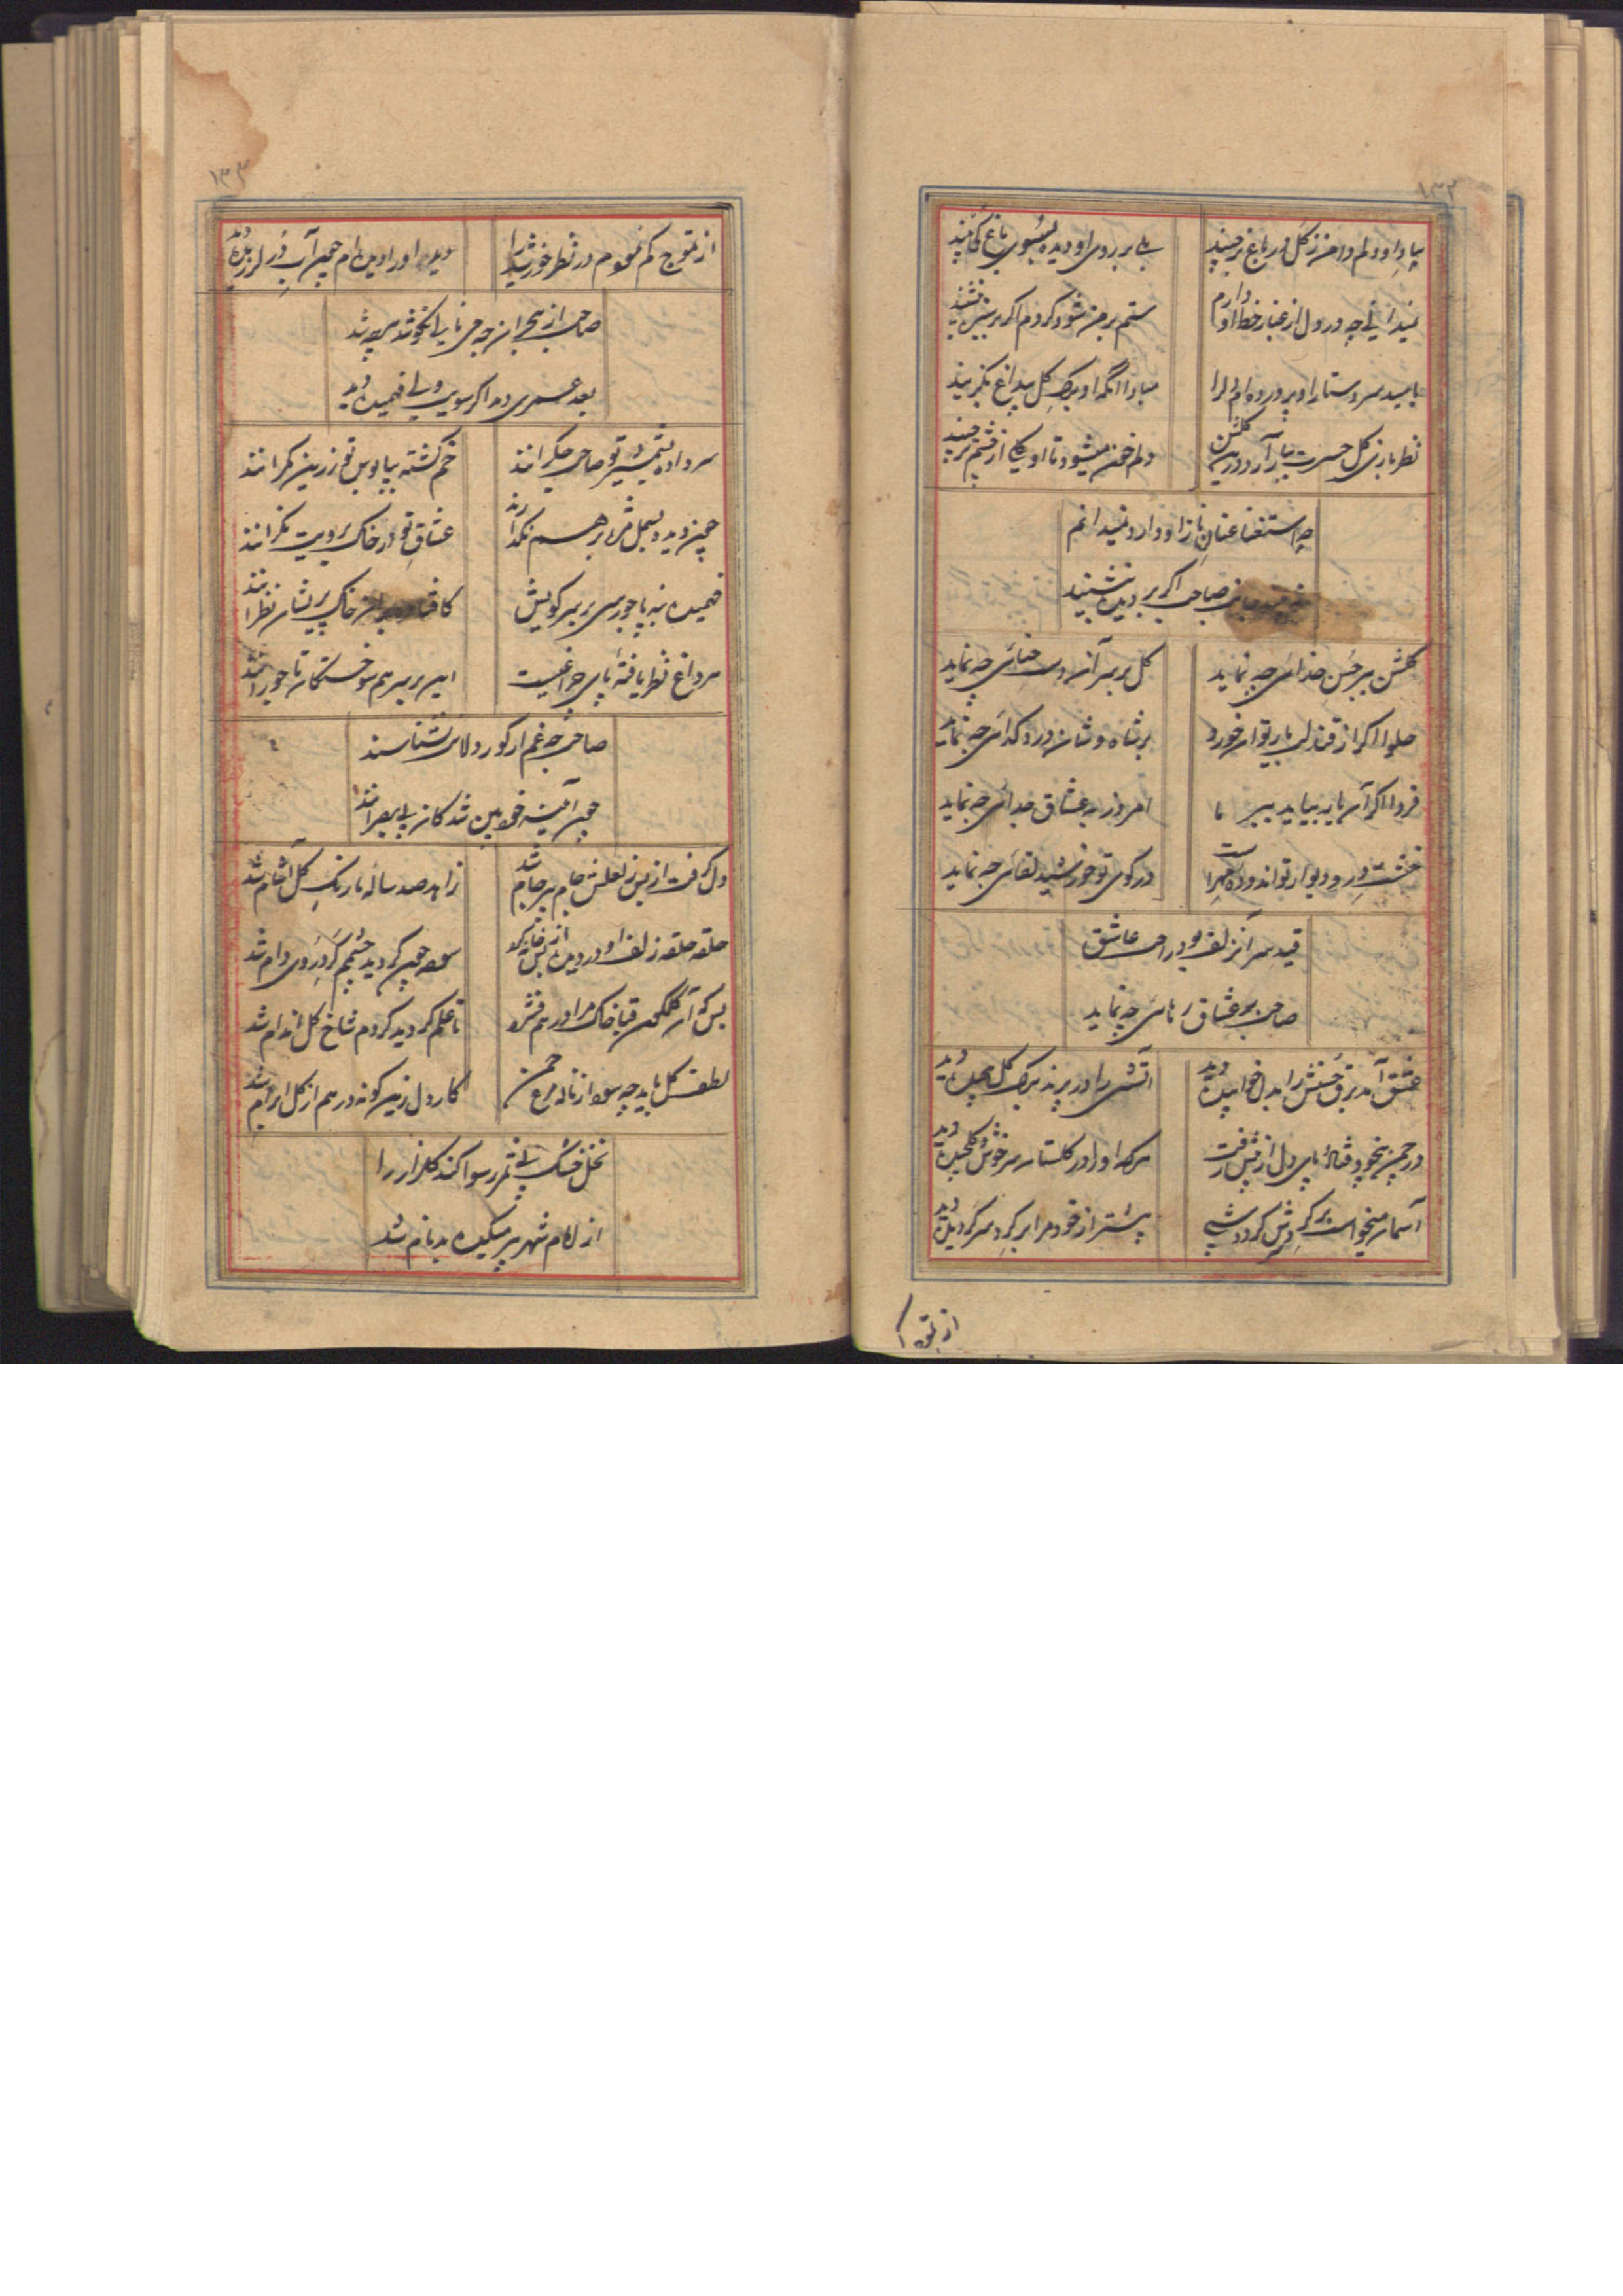 ۱۳۲
بیاد او دلم دامن ز گل در باغ برچیند
بلی بر روی او دیده بسوی باغ کی بیند
نمیدانی چه در دل از غبار خط او دارم
ستم بر من شود گردم اگر بر
بامید سر دستار او پرورده ام دلرا
مبادا آنکه او برک گل بیداغ بگزیند
نظر بازی گل حسرت ببار آرد درین گلشن
دلم خون میشود تا او یکی از خشم برچیند
چه استغنا عنان ناز او دارد نمیدانم
صاحب اگر بر دیده بنشیند
گلشن بر حسن خدائی چه نماید
گل بر سر آن دست حنائی چه نماید
حلوا اگر از قند لب یار توان خورد
بر شاه وشان درد گدائی چه نماید
فردا اگر آن یار بیاید ببر ما
امروز به عشاق جدائی چه نماید
خشت در و دیوار تو اندوده مهر است
در کوی تو خورشید لقائی چه نماید
قید سر آن زلف بود راحت عاشق
صاحب بر عشاق رهائی چه نماید
عشق آمد برق حسنش را بدل خوابیده دید
آتشی را در پرند برک گل پیچیده دید
در چمن بیخود فتاد پای دل از پیش رفت
هرکه او را در گلستان سرخوش و گلچیده دید
آسمان میخواست بر گردش کرد شبی
پیشتر از خود مرا بر گرد سر گردیده دید
از تموج
۱۳۳
از تموج کم نمودم در نظر خورشید را
دیده او را دیده ام چون آب در لرزیده دید
صاحب از هجران چه می نالی نکو شد
بعد عمری دمد اگر سویت ولی فهمیده دید
سر داده بشمشیر تو صاحب جگرانند
خم گشته بپابوس تو زرین کمرانند
چون دیده بسمل مژه بر هم نگذارند
عشاق تو در خاک برویت نگرانند
فهمیده بنه پا چو رسی بر سر کویش
خاک پریشان نظرانند
هر داغ نظر یافته پای چراغیست
این بر سر هم سوختگان تاجورانند
صاحب چه غم ار کور دلان نشناسند
چون آینه خودبین شدگان بی بصرانند
دل گرفت از بس ز لعلش جام بر جام شد
زاهد صد ساله با رنگ گل آشام شد
حلقه حلقه زلف او در دیده از بس خانه کرد
چون گردید چشمم گرد روی دام شد
بس که آن گلگون قبا خاک مرا در هم فشرد
تا علم گردید گردم شاخ گل اندام شد
لطف گل باید چه سود از ناله مرغ چمن
کار دل زین گونه درهم از گل ابرام شد
نخل خشک بی ثمر رسوا کند گلزار را
از شهر پر میکده بدنام شد